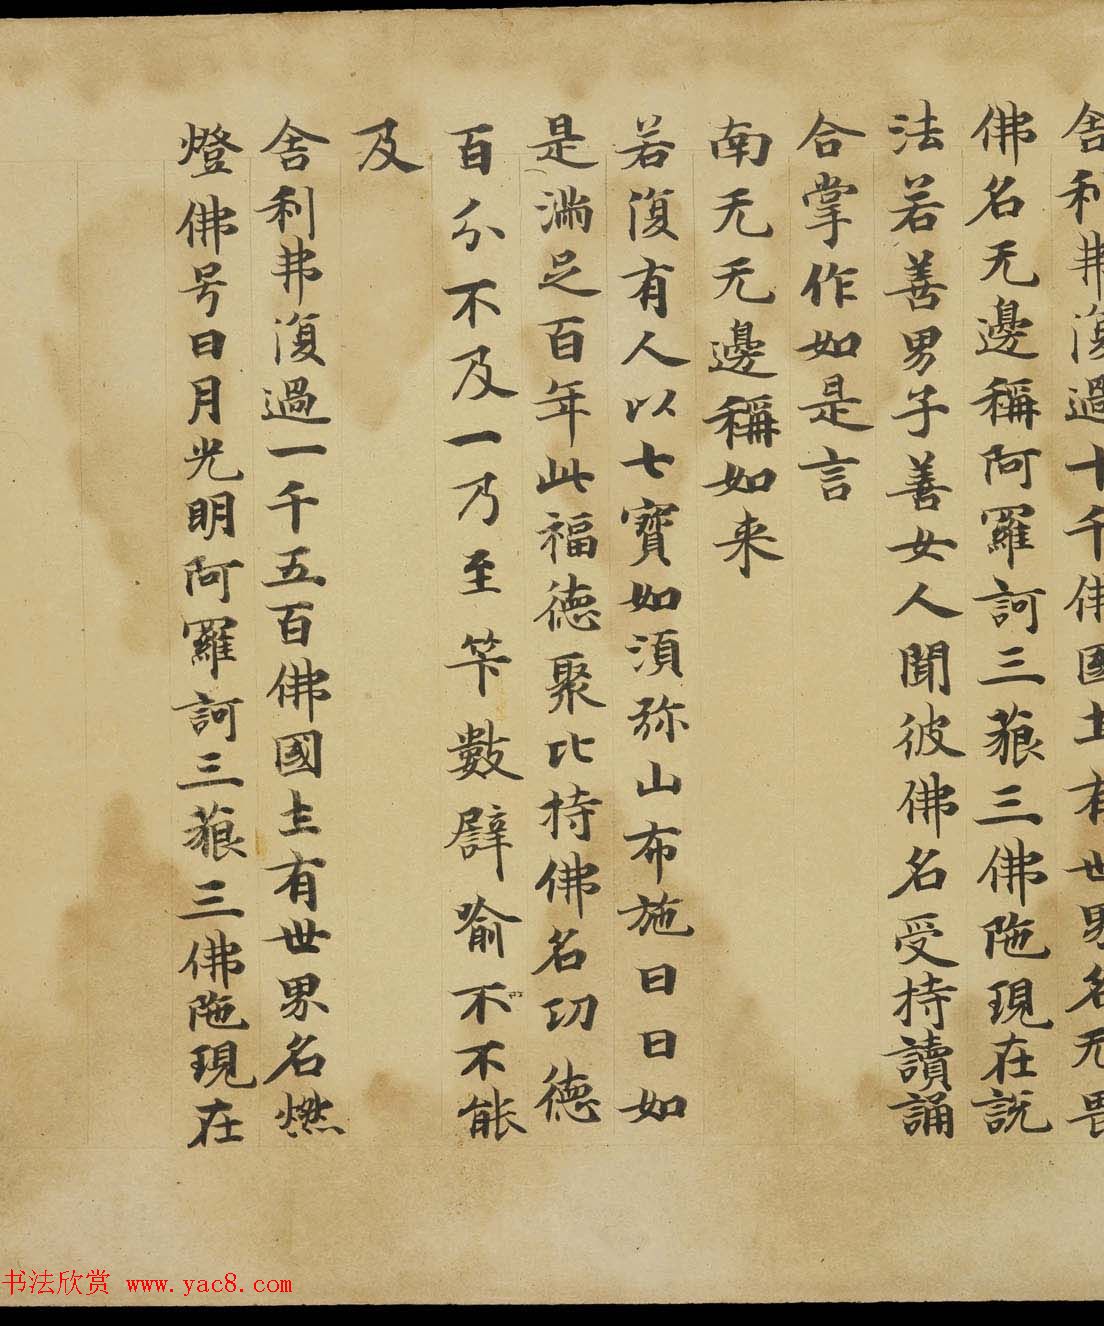 舍利弗復過十千佛國土有世界名无畏
佛名无邊稱阿羅訶三藐三佛陁現在説
法若善男子善女人聞彼佛名受持讀誦
合掌作如是言
南无无邊稱如来
若復有人以七寶如須弥山布施日日如
是滿足百年此福德聚比持佛名功德
百分不及一乃至笇數譬喻不不能
及
舍利弗復過一千五百佛國土有世界名燃
燈佛号日月光明阿羅訶三藐三佛陁現在
书法欣赏 www.yac8.com